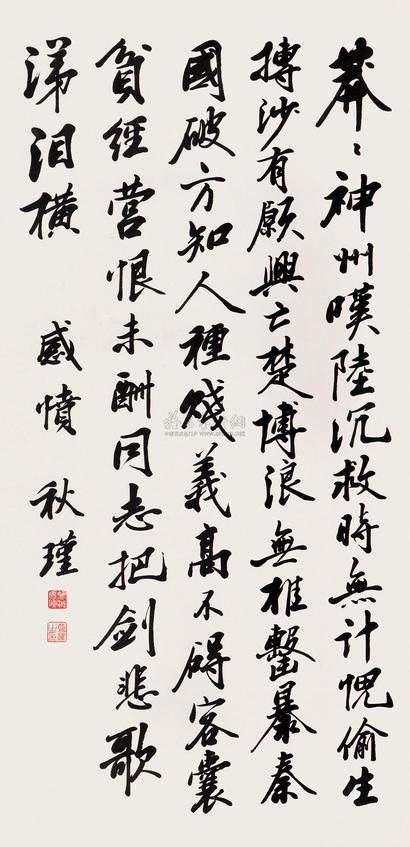 莽〻神州嘆陸沉救時無計愧偷生
摶沙有願興亡楚博浪無椎鑿暴秦
國破方知人種賤義高不碍客囊
貧經營恨未酬同志把劍悲歌
涕泪橫 感憤 秋瑾